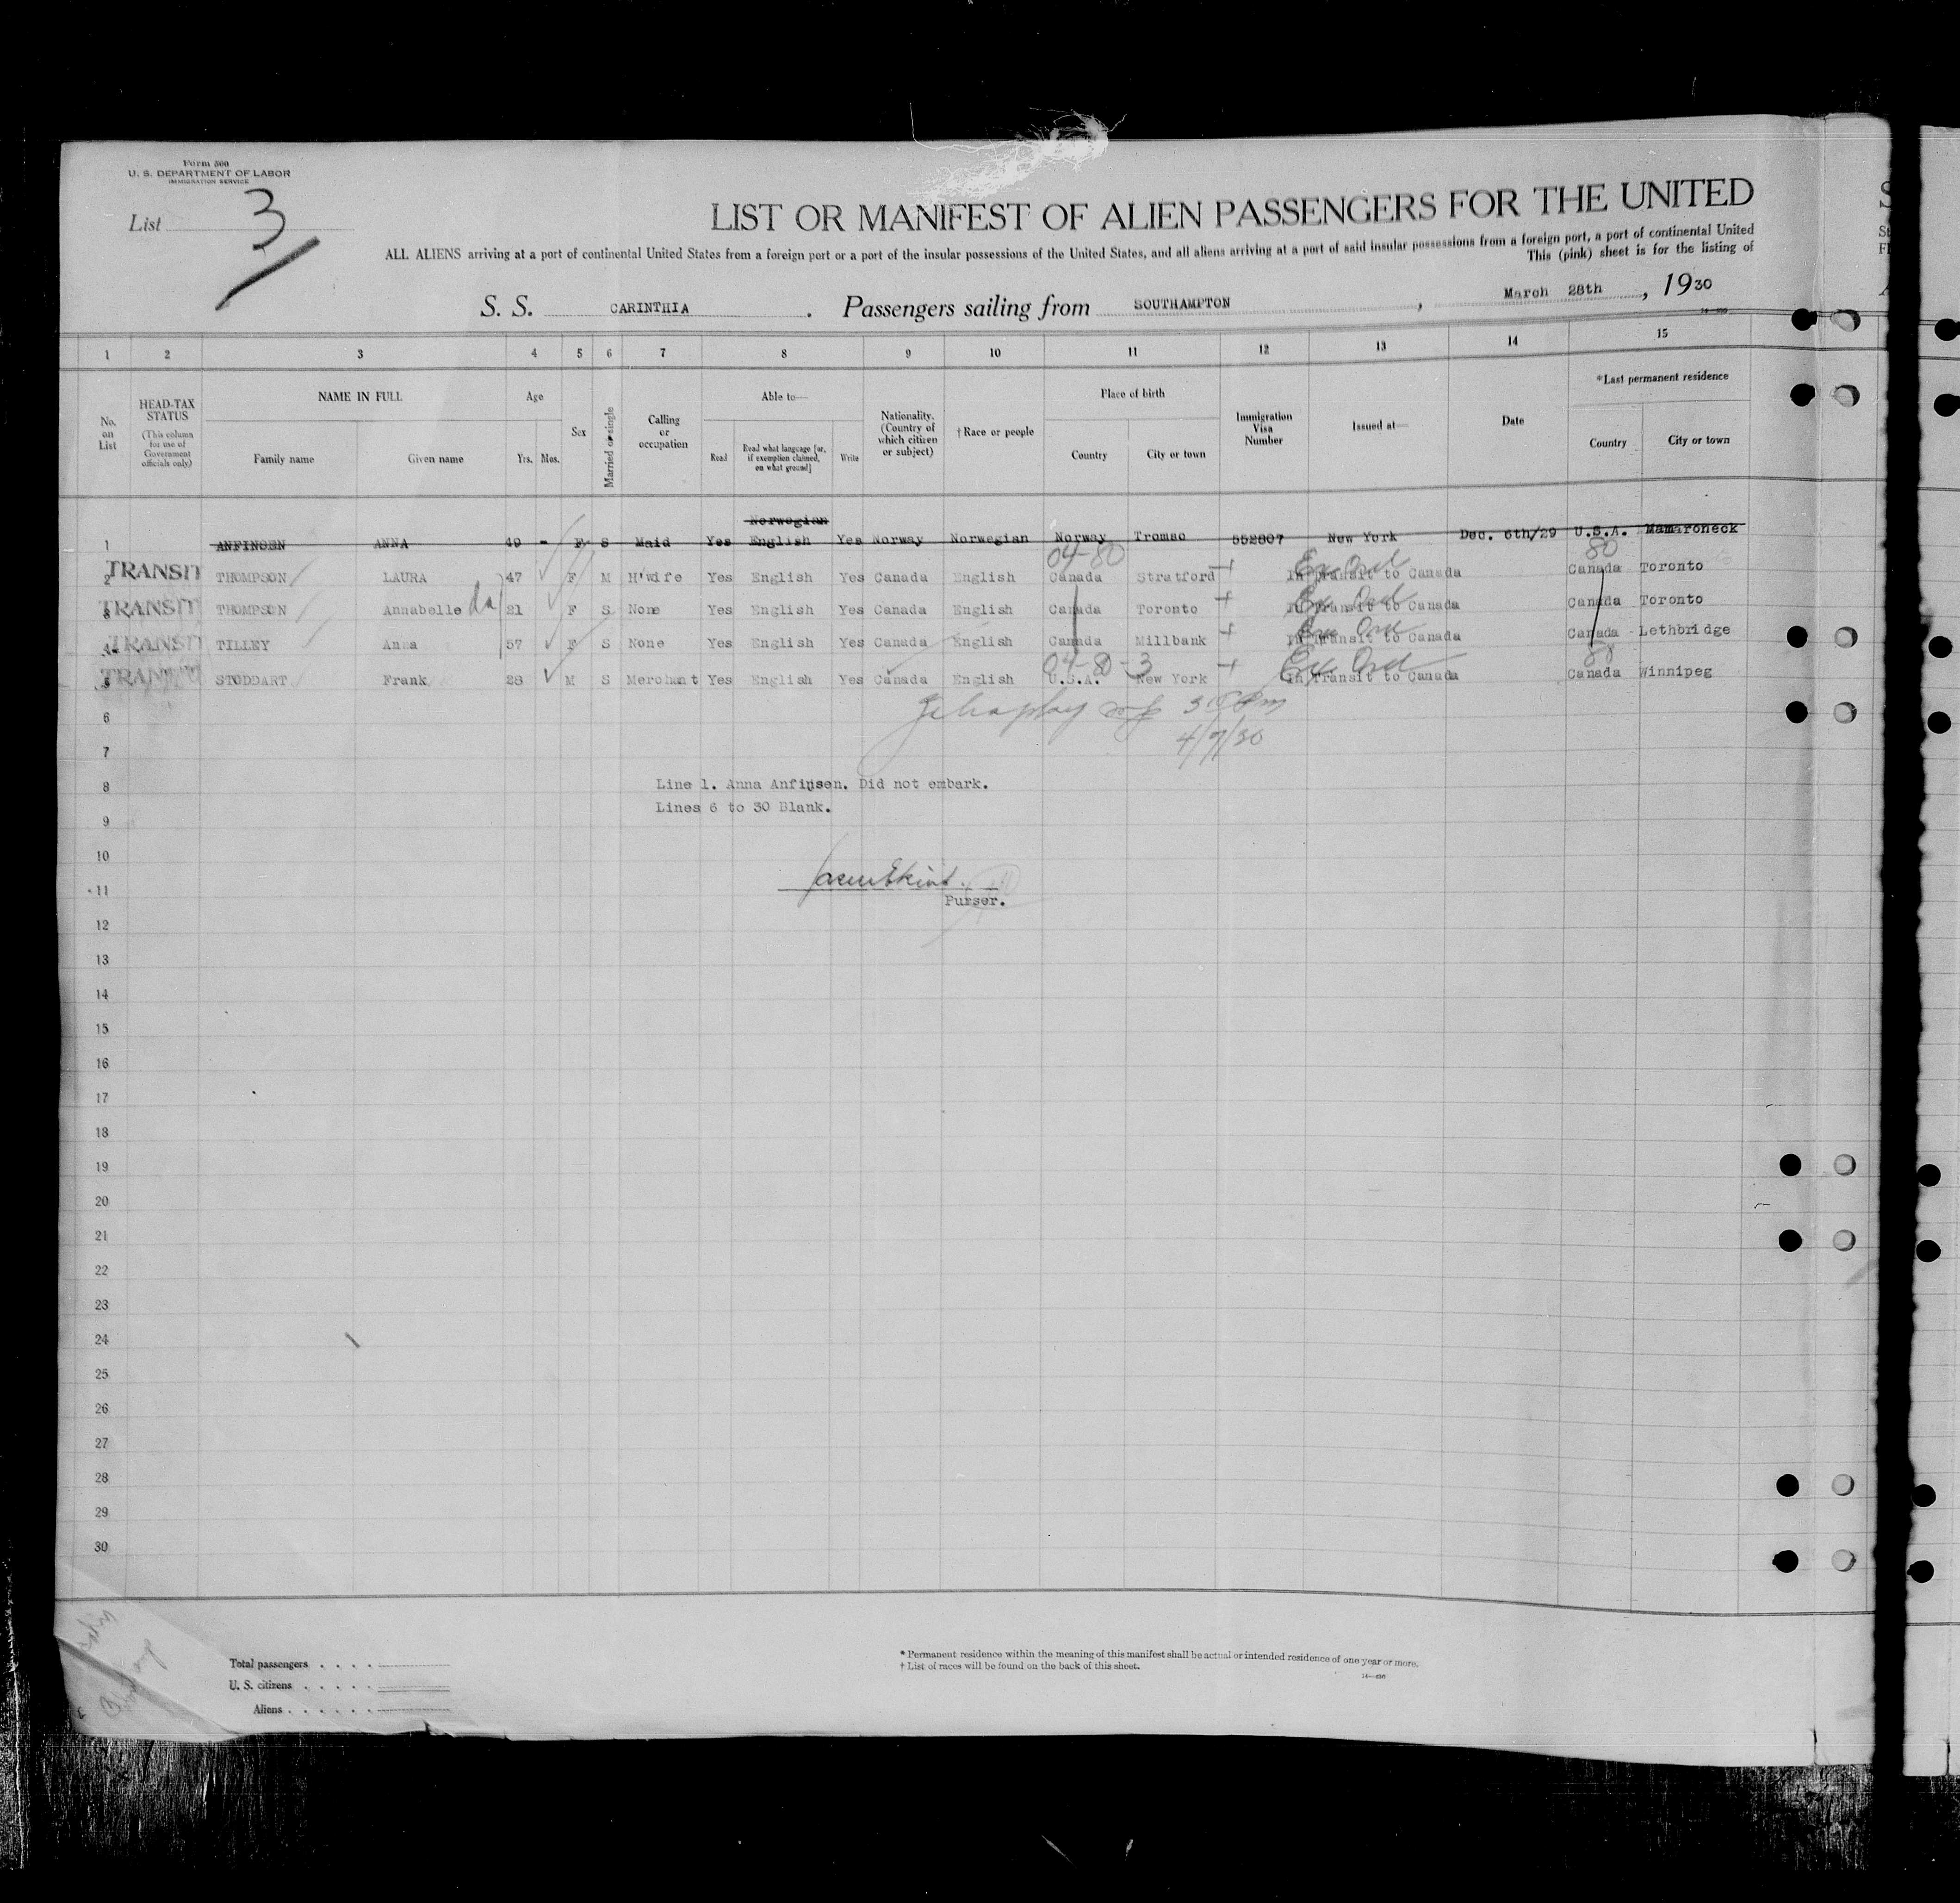 Form 500
U. S. DEPARTMENT OF LABOR
IMMIGRATION SERVICE
List 3
LIST OR MANIFEST OF ALIEN PASSENGERS FOR THE UNITED
ALL ALIENS arriving at a port of continental United States from a foreign port or a port of the insular possessions of the United States, and all aliens arriving at a port of said insular possessions from a foreign port, a port of continental United
This (pink) sheet is for the listing of
S. S. CARINTHIA . Passengers sailing from SOUTHAMPTON , March 28th , 1930
1 2 3 4 5 6 7 8 9 10 11 12 13 14 15
No. on List
HEAD-TAX STATUS (This column for use of Government officials only)
NAME IN FULL
Family name Given name
Age
Yrs. Mos.
Sex
Married or single
Calling or occupation
Able to—
Read Read what language [or, if exemption claimed, on what ground] Write
Nationality. (Country of which citizen or subject)
† Race or people
Place of birth
Country City or town
Immigration Visa Number
Issued at—
Date
*Last permanent residence
Country City or town
Norwegian
1 ANFINSEN ANNA 49 - F S Maid Yes English Yes Norway Norwegian Norway Tromso 552807 New York Dec. 6th/29 U.S.A. Mamaroneck
04-80 80
2 TRANSIT THOMPSON LAURA 47 F M H'wife Yes English Yes Canada English Canada Stratford In Transit to Canada Canada Toronto
3 TRANSIT THOMPSON Annabelle da 21 F S None Yes English Yes Canada English Canada Toronto In Transit to Canada Canada Toronto
4 TRANSIT TILLEY Anna 57 F S None Yes English Yes Canada English Canada Millbank In Transit to Canada Canada Lethbridge
04-8-3 80
5 TRANSIT STODDART Frank 28 M S Merchant Yes English Yes Canada English U.S.A. New York In Transit to Canada Canada Winnipeg
6
4/7/30
7
8 Line 1. Anna Anfinsen. Did not embark.
Lines 6 to 30 Blank.
9
10
11
Purser.
12
13
14
15
16
17
18
19
20
21
22
23
24
25
26
27
28
29
30
Total passengers . . . .
U. S. citizens . . . . .
Aliens . . . . . .
* Permanent residence within the meaning of this manifest shall be actual or intended residence of one year or more.
† List of races will be found on the back of this sheet.